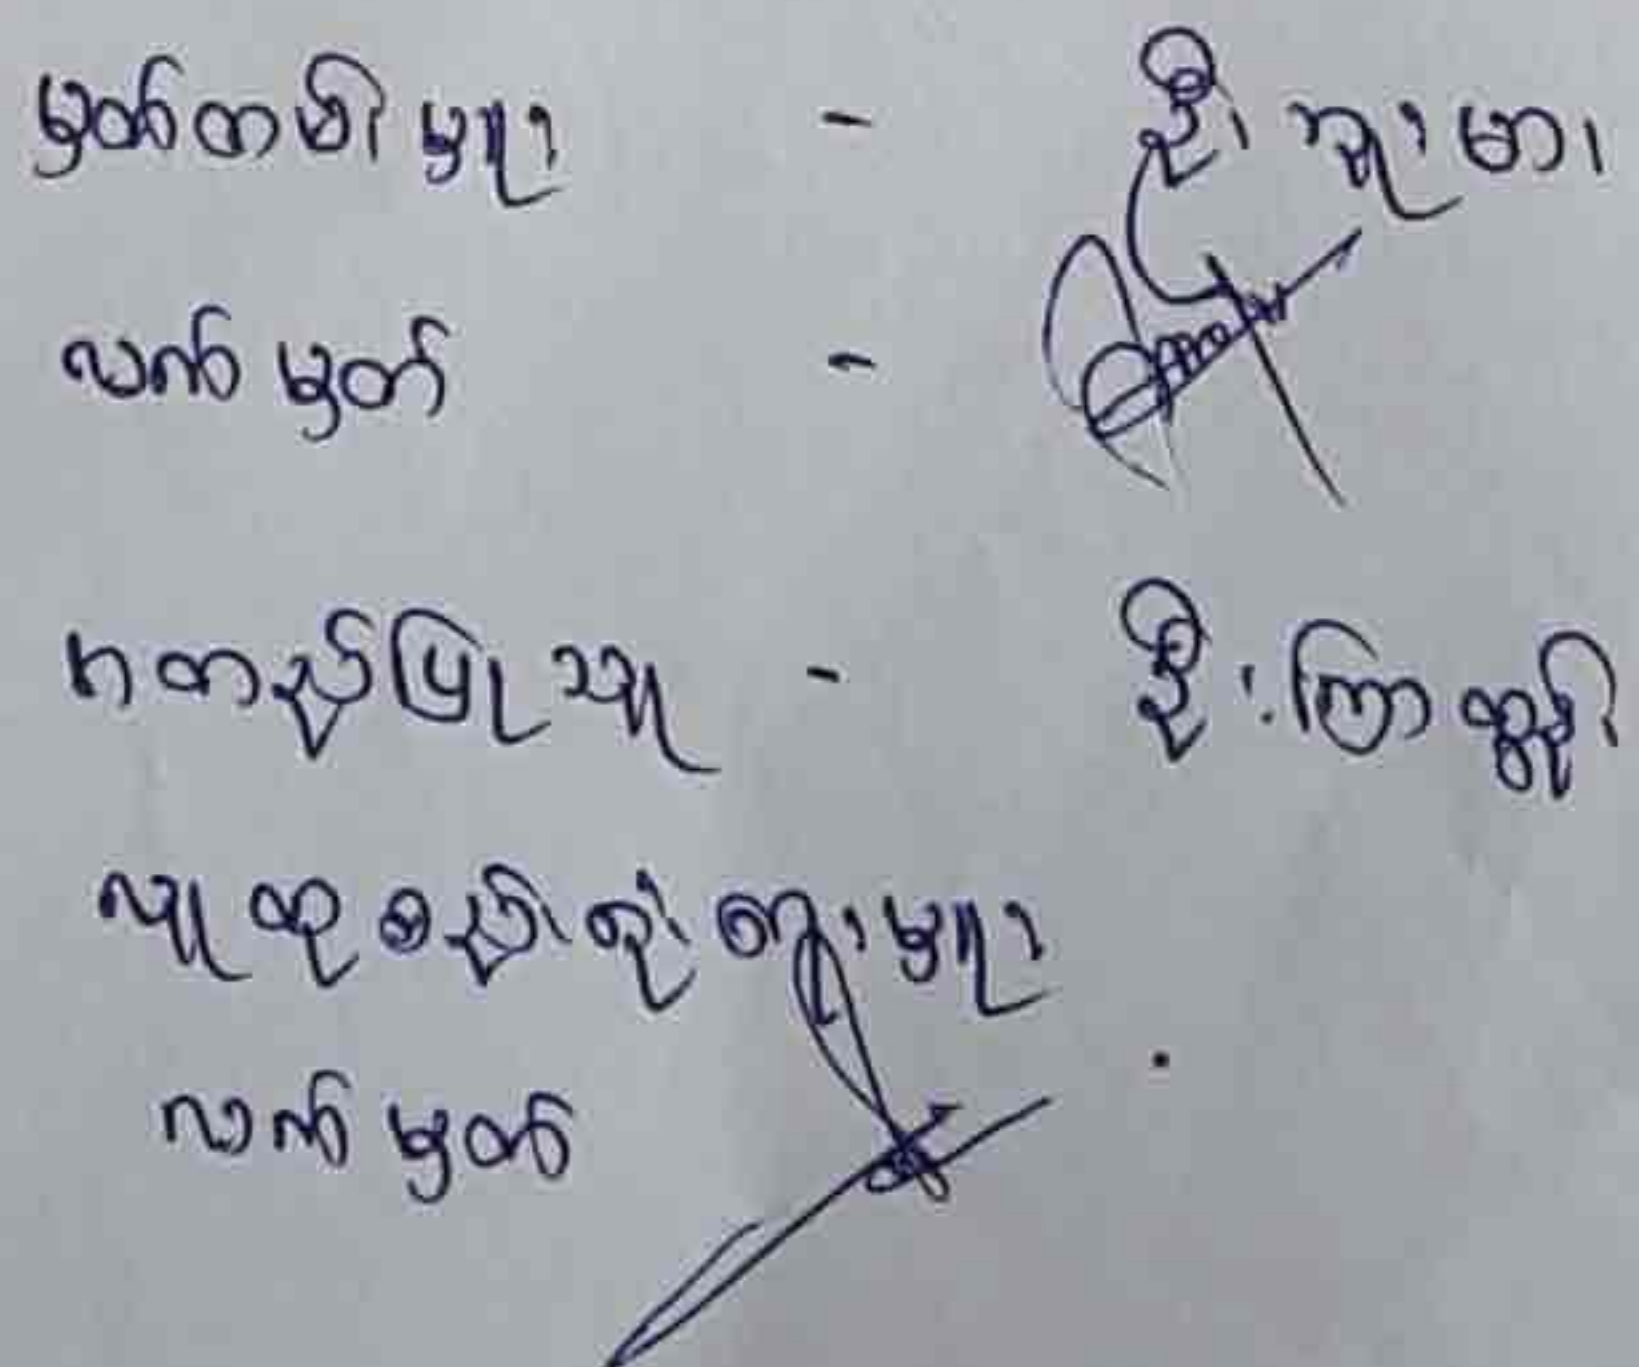 မှတ်တမ်းမှူး - ဦးကူးမား
လက်မှတ် -
ကတည်ပြုသူ - ဦးကြာထွန်း
လူထုစည်းရုံးရေးမှူး
လက်မှတ်